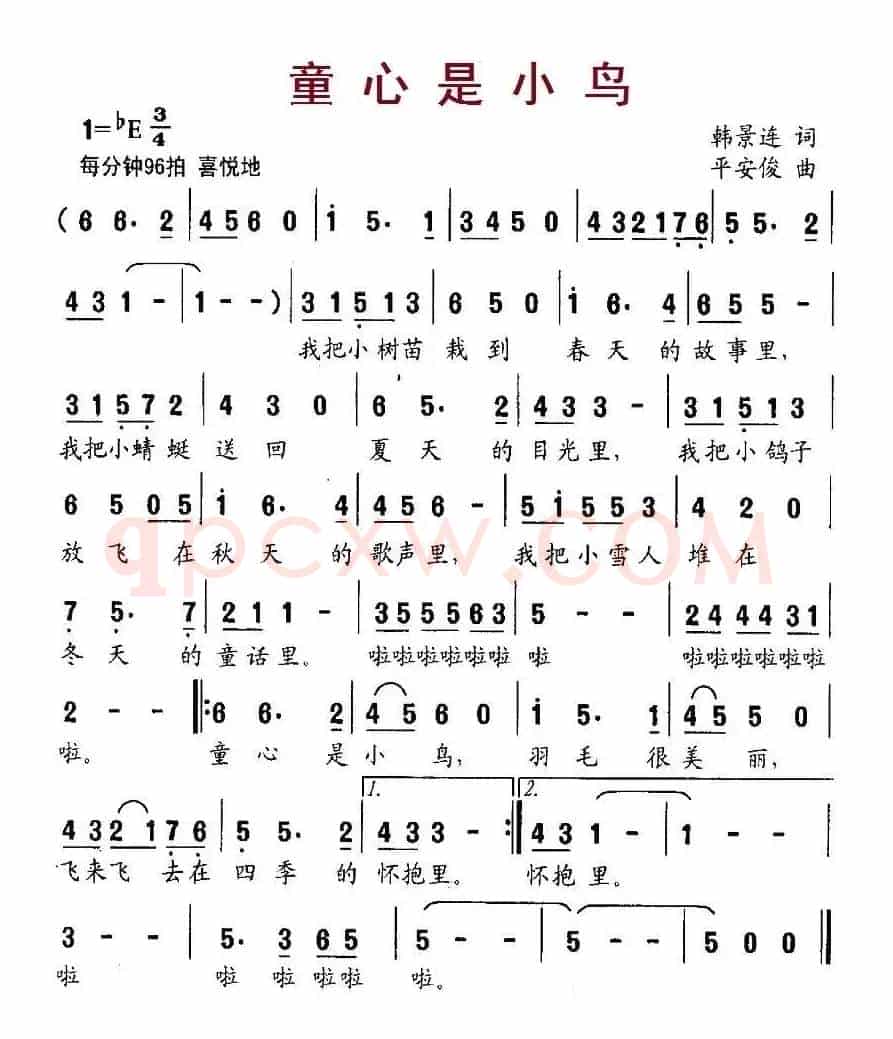 童心是小鸟
1=♭E 3/4
韩景连 词
每分钟96拍 喜悦地
平安俊 曲
( 6 6. 2 | 4 5 6 0 | i 5. 1 | 3 4 5 0 | 4 3 2 1 7 6 | 5 5. 2 |
4 3 1 - | 1 - - ) | 3 1 5 1 3 | 6 5 0 | i 6. 4 | 6 5 5 - |
我把小树苗 栽到 春天 的故事里,
3 1 5 7 2 | 4 3 0 | 6 5. 2 | 4 3 3 - | 3 1 5 1 3 |
我把小蜻蜓 送回 夏天 的目光里, 我把小鸽子
6 5 0 5 | i 6. 4 | 4 5 6 - | 5 i 5 5 3 | 4 2 0 |
放飞 在秋天 的歌声里, 我把小雪人 堆在
7 5. 7 | 2 1 1 - | 3 5 5 5 6 3 | 5 - - | 2 4 4 4 3 1 |
冬天 的童话里。 啦啦啦啦啦啦 啦 啦啦啦啦啦啦
2 - - |: 6 6. 2 | 4 5 6 0 | i 5. 1 | 4 5 5 0 |
啦。 童心 是小鸟, 羽毛 很美丽,
1. 2.
4 3 2 1 7 6 | 5 5. 2 | 4 3 3 - :| 4 3 1 - | 1 - - |
飞来飞 去在四季 的怀抱里。 怀抱里。
3 - - | 5. 3 6 5 | 5 - - | 5 - - | 5 0 0 ||
啦 啦 啦 啦啦 啦。
qpcxw.COM